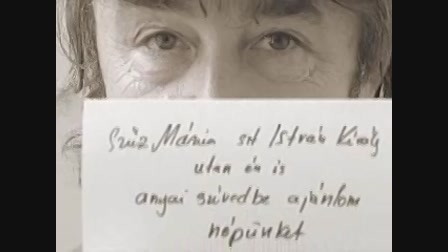 Szűz Mária szt István Király
után én is
anyai szívedbe ajánlom
népünket